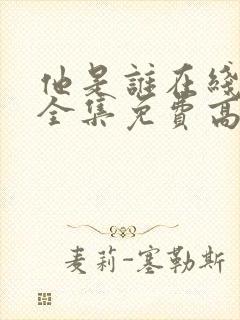 他是誰在綫
全集免費高
麦莉-塞勒斯